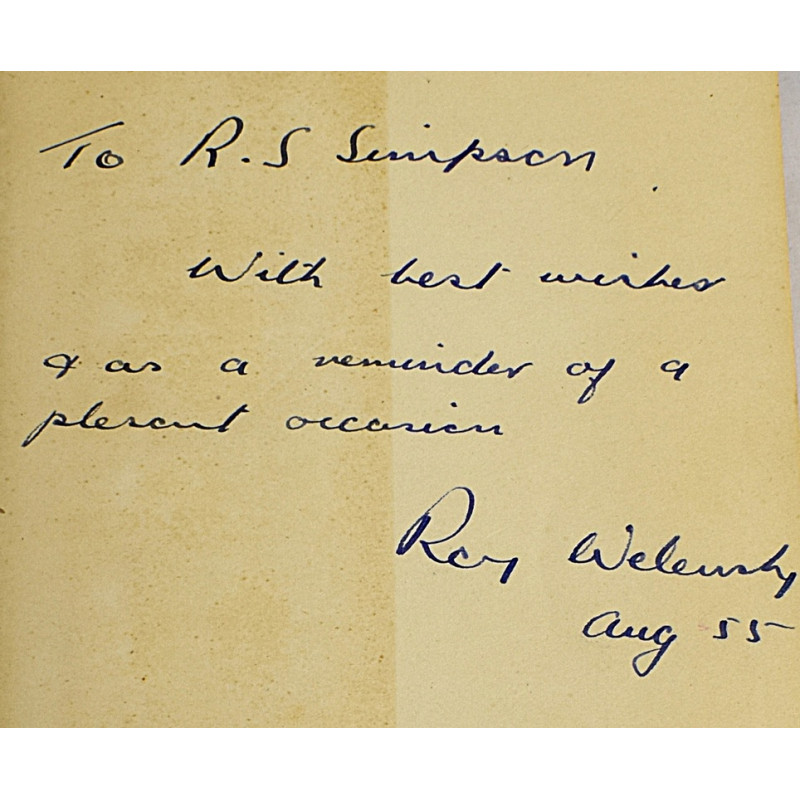 To R.S Simpson
With best wishes
& as a reminder of a
plesant occasion
Roy Welensky
Aug 55